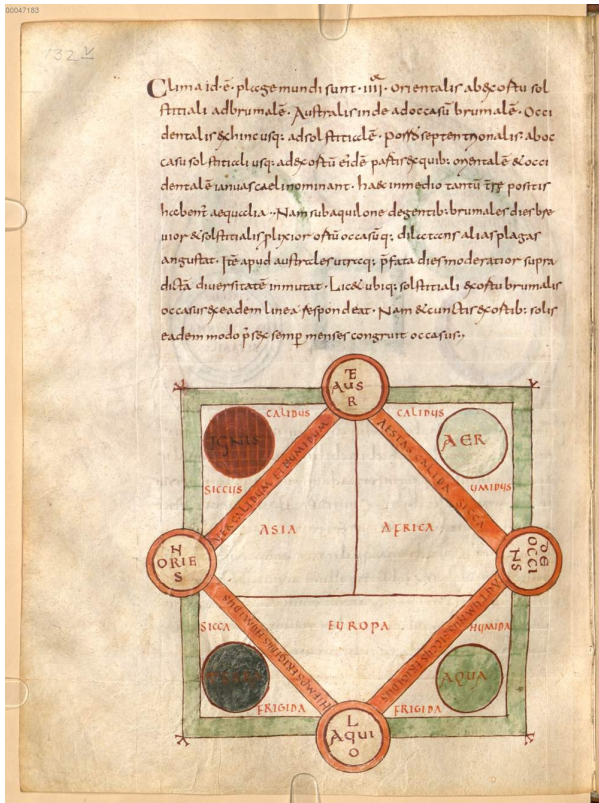 00047183
132 v
Clima id·ē· plage mundi sunt· IIII· Orientalis ab exortu sol
stitiali ad brumalē· Australis inde ad occasū brumalē· Occi
dentalis & hinc usq: ad solstitialē· Porro septentrionalis ab oc
casu solstitiali usq: ad exortū eiusdē partis ex quib: orientalē & occi
dentalē ianuas caeli nominant· haec in medio tantū positis
habent aequalia·· Nam sub aquilone degentib: brumales dies bre
uior & solstitialis plixior ortū occasūq: alias plagas
angustat· Itē apud australes utrāq: p̄fata dies moderatior supra
dictā diuersitatē inmutat· Lic& ubiq: solstitiali exortu brumalis
occasus ex eadem linea respondeat· Nam & cunctis exortib: solis
eadem modo p sex semp menses congruit occasus;,
AUSTER
CALIDUS
CALIDUS
IGNIS
AER
UER CALIDUM ET HUMIDUM
AESTAS CALIDA SICCA
SICCUS
UMIDUS
ASIA
AFRICA
ORIENS
OCCIDENS
SICCA
EUROPA
HUMIDA
HIEMPS FRIGIDUS HUMIDUS
AUTUMNUS SICCUS FRIGIDUS
TERRA
AQUA
FRIGIDA
FRIGIDA
AQUILO